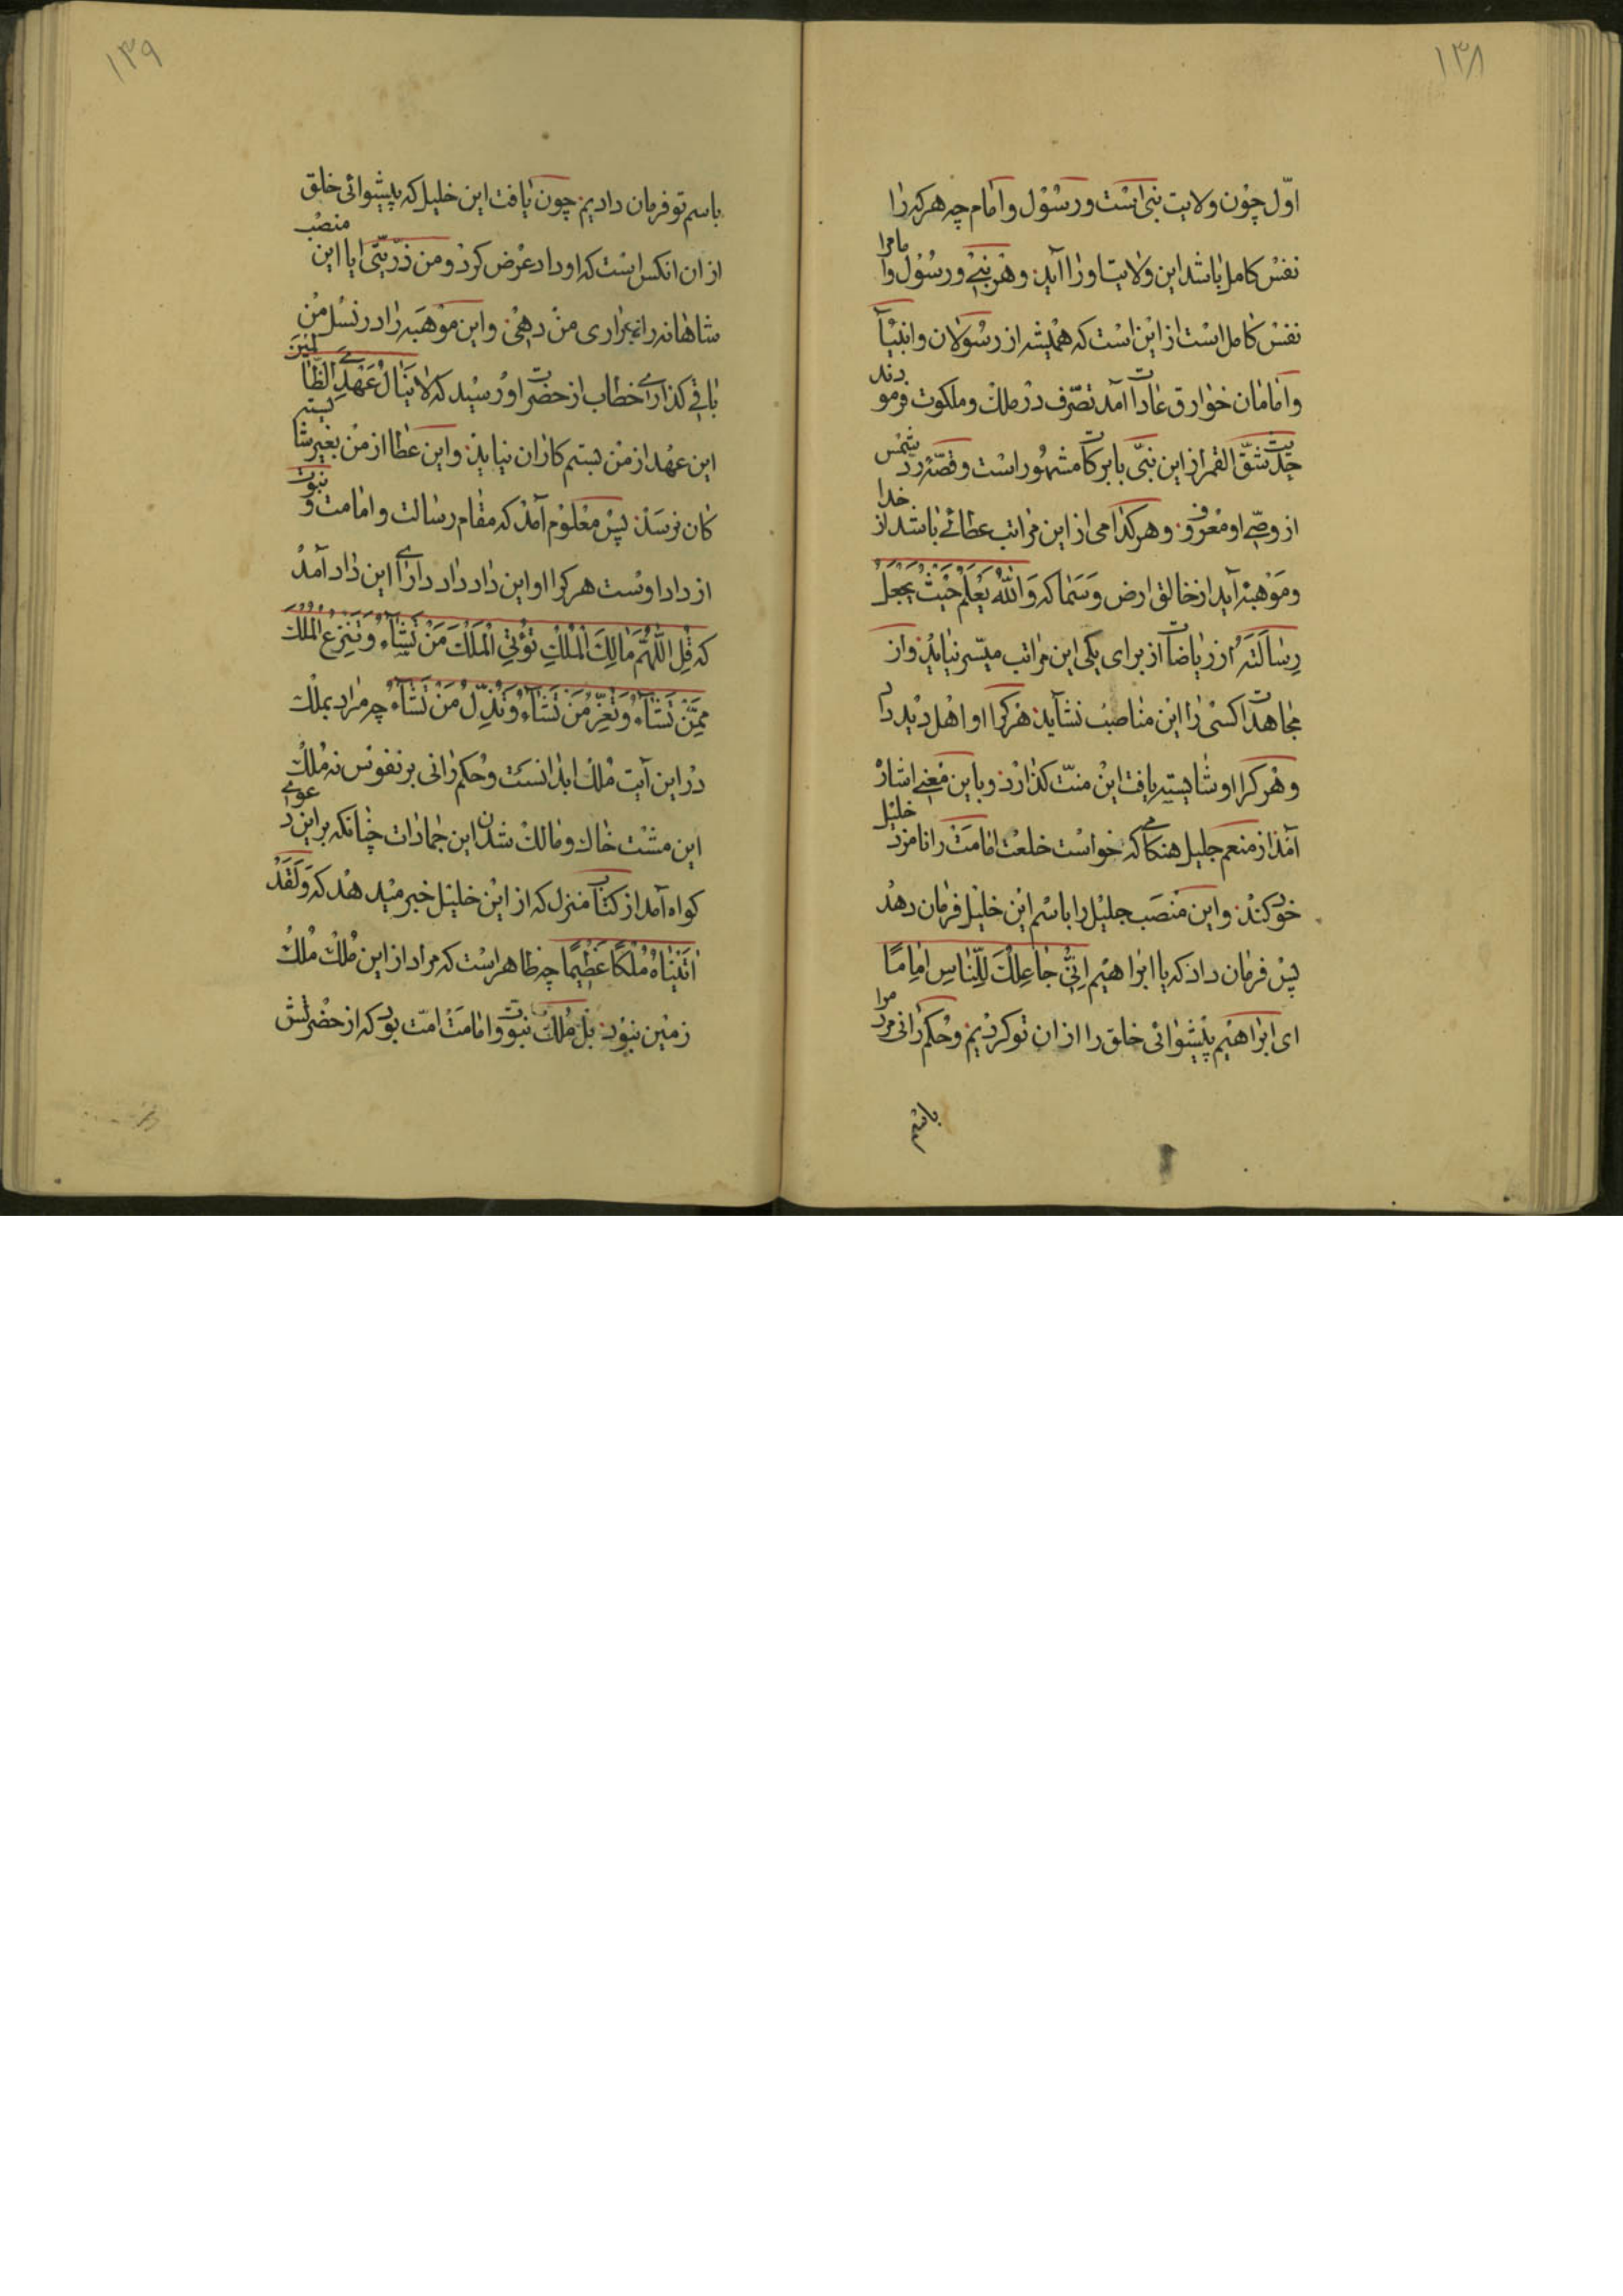 ۱۳۸
اوّل چون ولایت نبی است و رسول و امام چه هرکه را
نفس کامل باشد این ولایت او را آید و هر نبی و رسول و امام را
نفس کامل است از این است که همیشه از رسولان و انبیآ
و امامان خوارق عادات آمد تصرف در ملک و ملکوت فرمودند
حدیث شقّ القمر از این نبّی بابرکات مشهور است و قصّه ردّ شمس
از وصّی او معروف و هر کدامی از این مراتب عطائی باشد از خدا
و موهبة آید از خالق ارض و سما که وَاللّٰهُ یَعْلَمُ حَیْثُ یَجْعَلُ
رِسٰالَتَهُ از ریاضات از برای یکی این مراتب میسّر نیاید و از
مجاهدات کسی را این مناصب نشاید هر کرا او اهل دید داد
و هر کرا او شایسته یافت این منّت گذارد و باین معنی اشار
آمد از منعم جلیل هنگامی که خواست خلعت امامت را نامزد خلیل
خود کند و این منصب جلیل را باسم این خلیل فرمان دهد
پس فرمان داد که یا ابراهیم اِنّی جٰاعِلُکَ لِلنّٰاسِ اِمٰامًا
ای ابراهیم پیشوائی خلق را از ان تو کردیم و حکم رانی مردم را
باسم
۱۳۹
باسم تو فرمان دادیم چون یافت این خلیل که پیشوائی خلق
از ان انکس است که او داد عرض کرد و من ذرّیّتی ایا این منصب
شاهانه را بذراری من دهی و این موهبه را در نسل من
باقی گذاری خطاب از حضرت او رسید که لا یَنٰالُ عَهْدِی الظّٰالِمینَ
این عهد از من بستم کاران نیاید و این عطا از من بغیر شایسته
کان نرسد پس معلوم آمد که مقام رسالت و امامت و نبوت
از داد اوست هر کرا او این داد داد دارای این داد آمد
که قُلِ اللّٰهُمَّ مٰالِکَ الْمُلْکِ تُؤْتِی الْمُلْکَ مَنْ تَشٰآءُ وَ تَنْزِعُ الْمُلْکَ
مِمَّنْ تَشٰآءُ وَ تُعِزُّ مَنْ تَشٰآءُ وَ تُذِلُّ مَنْ تَشٰآءُ چه مراد بملک
در این آیت ملک ابدانست و حکم رانی بر نفوس نه ملک
این مشت خاک و مالک شدن این جمادات چنانکه بر این دعوی
کواه آمد از کتاب منزل که از این خلیل خبر میدهد که وَ لَقَدْ
اٰتَیْنٰاهُ مُلْکًا عَظیمًا چه ظاهر است که مراد از این مُلک مُلک
زمین نبود بل مُلک نبوت و امامت امّت بود که از حضرتش